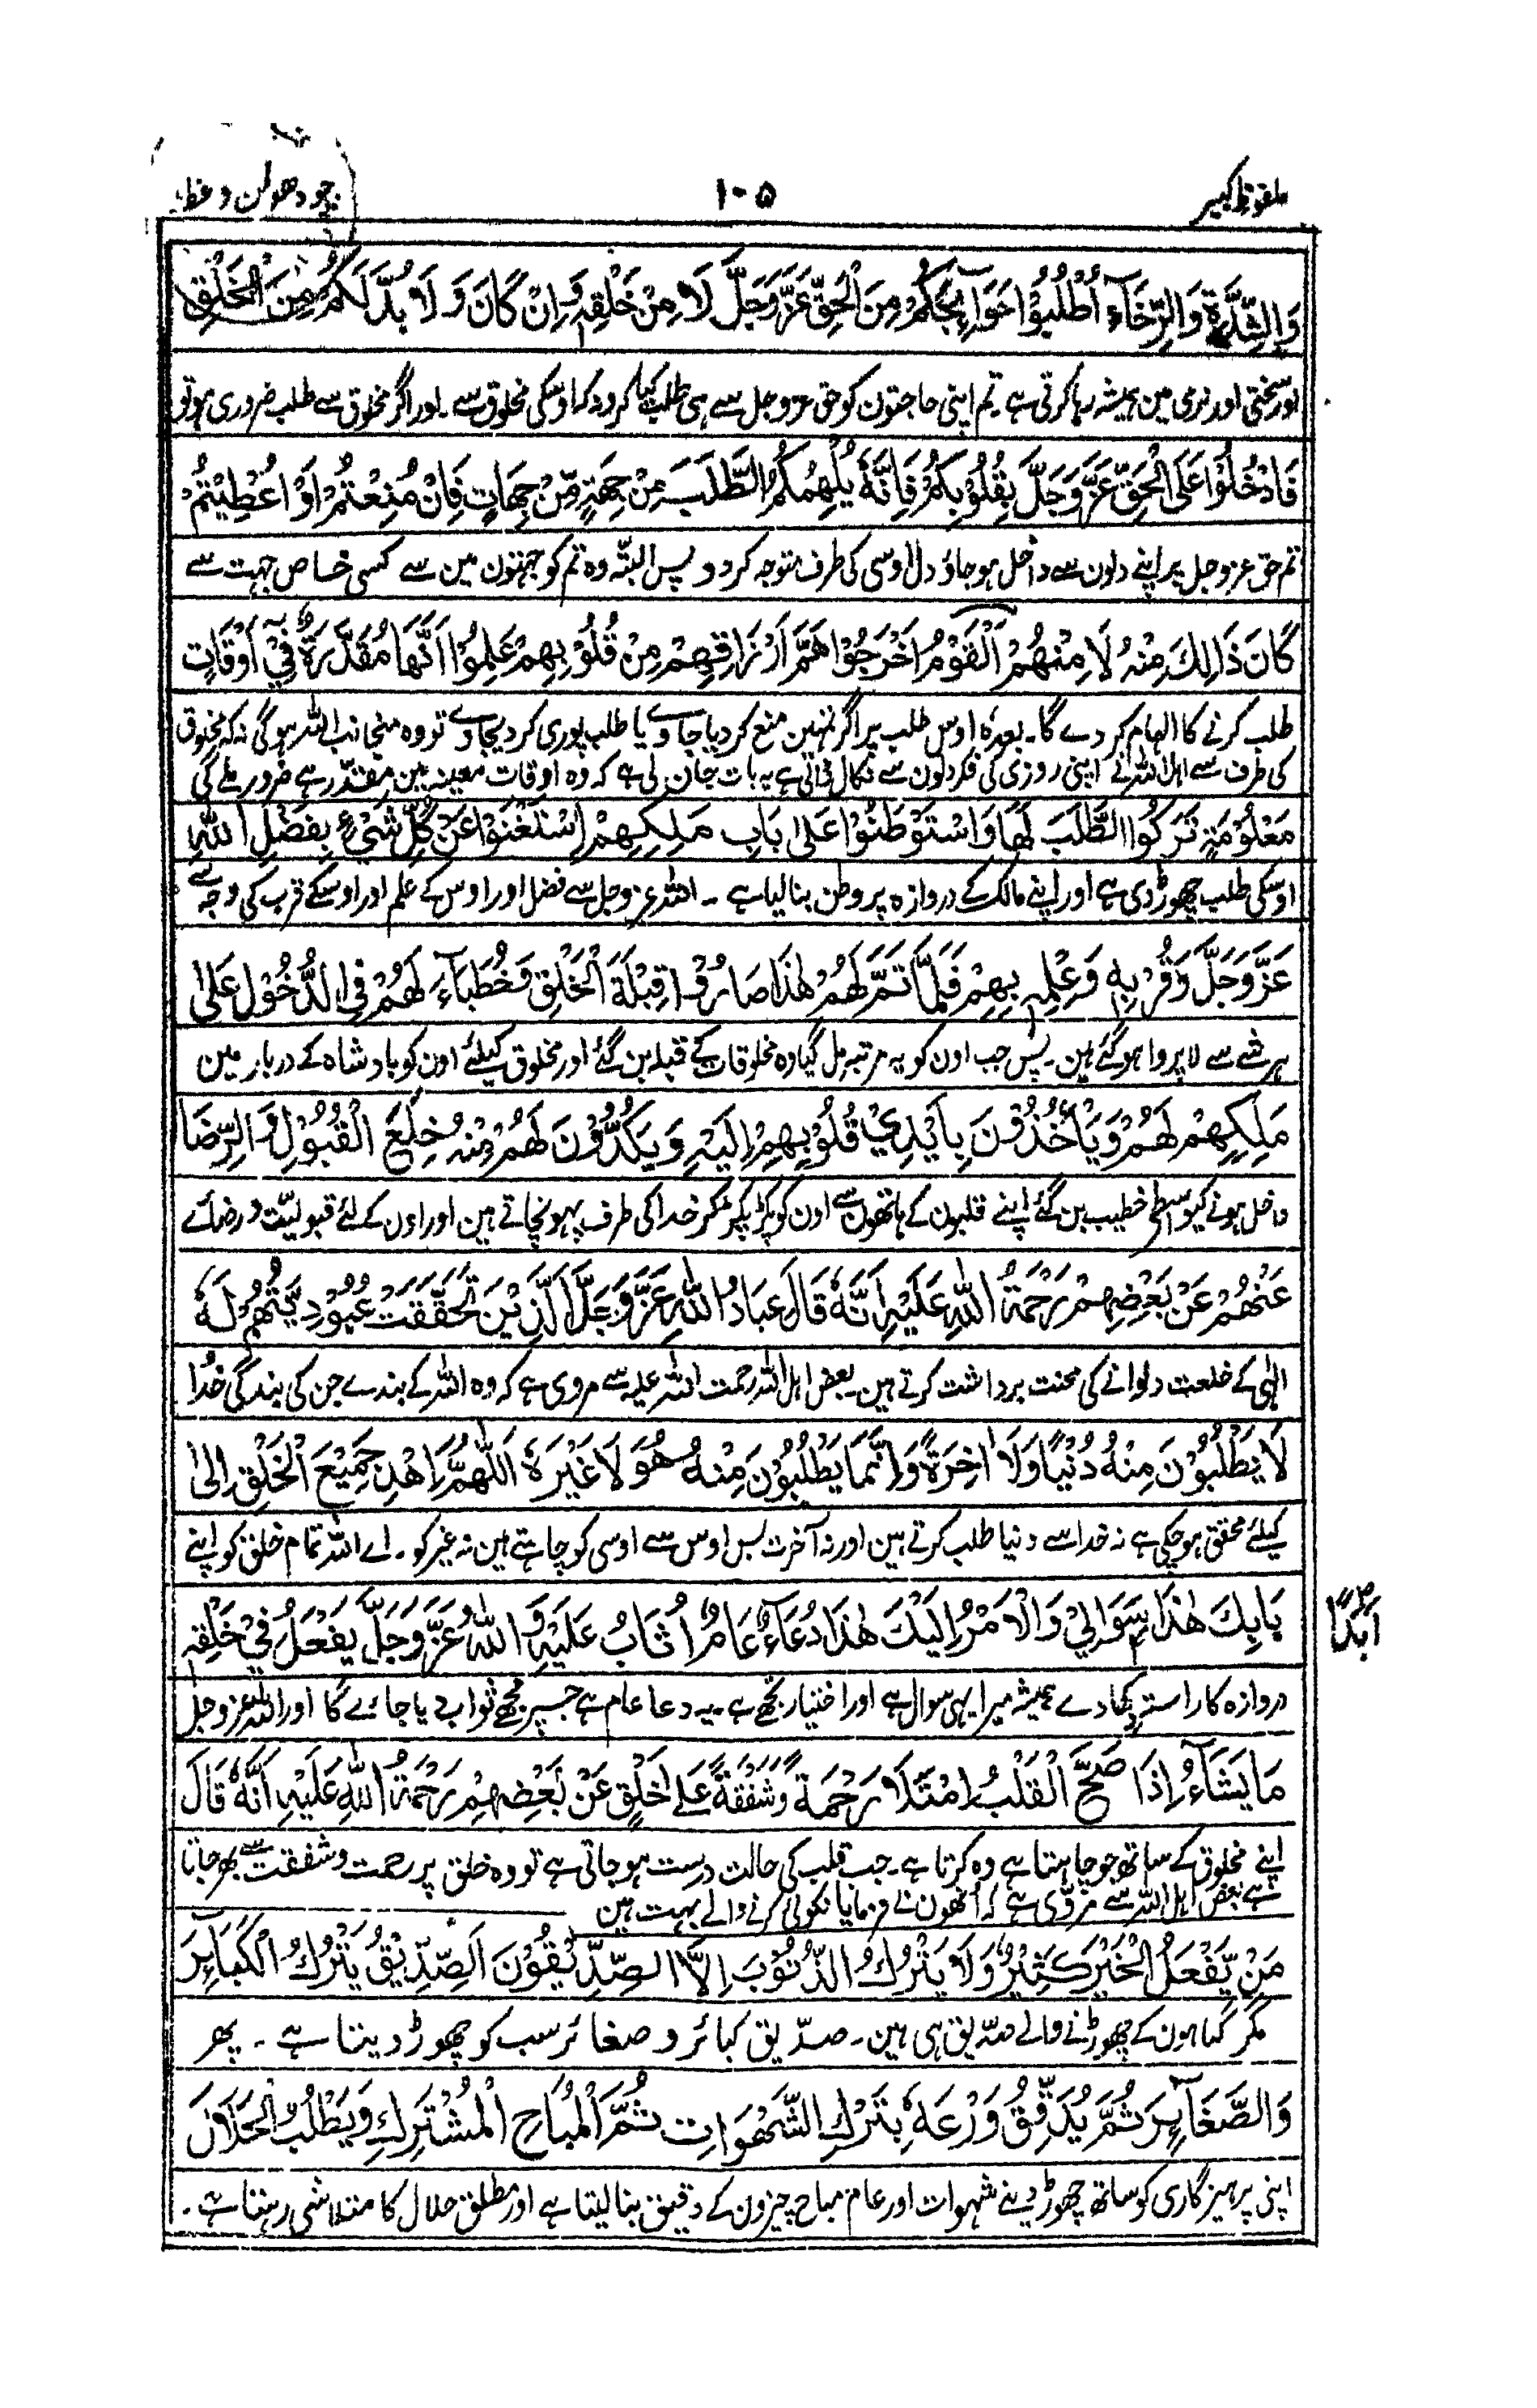 ملفوظ کبیر
۱۰۵
چودھوین وعظ
وَالشِّدَّةِ وَالرِّخَآءِ اُطْلُبُوْا حَوَآئِجَكُمْ مِنَ الْحَقِّ عَزَّوَجَلَّ لَا مِنْ خَلْقِهٖ وَاِنْ كَانَ وَلَا بُدَّ لَكُمْ مِنَ الْخَلْقِ
اور سختی اور نرمی مین ہمیشہ رہا کرتی ہے۔ تم اپنی حاجتون کو حق عزوجل سے ہی طلب کیا کرو نہ کہ اوسکی مخلوق سے۔ اور اگر مخلوق سے طلب ضروری ہو تو
فَادْخُلُوْا عَلَى الْحَقِّ عَزَّوَجَلَّ بِقُلُوْبِكُمْ فَاِنَّهٗ يُلْهِمُكُمُ الطَّلَبَ مِنْ جِهَةٍ مِّنْ جِهَاتٍ فَاِنْ مُنِعْتُمْ اَوْ اُعْطِيْتُمْ
تم حق عزوجل پر اپنے دلون سے داخل ہوجاؤ دل اوسی کی طرف متوجہ کردو پس البتّہ وہ تم کو جہتون مین سے کسی خاص جہت سے
كَانَ ذَالِكَ مِنْهُ لَا مِنْهُمْ اَلْقَوْمُ اَخْرَجُوْا هَمَّ اَرْزَاقِهِمْ مِنْ قُلُوْبِهِمْ عَلِمُوْا اَنَّهَا مُقَدَّرَةٌ فِيْ اَوْقَاتٍ
طلب کرنے کا الہام کردے گا۔ بعدہٗ اوس طلب پر اگر تمہین منع کردیا جاوے یا طلب پوری کردیجاوے تو وہ منجانب اللہ ہوگی نہ کہ مخلوق
کی طرف سے اہل اللہ نے اپنی روزی کی فکر دلون سے نکال ڈالی ہے یہ بات جان لی ہے کہ وہ اوقات معینہ مین مقدّر ہے ضرور ملے گی
مَعْلُوْمَةٍ تَرَكُوا الطَّلَبَ لَهَا وَاسْتَوْطَنُوْا عَلٰى بَابِ مَلِكِهِمْ اِسْتَغْنَوْا عَنْ كُلِّ شَيْءٍ بِفَضْلِ اللّٰهِ
اوسکی طلب چھوڑ دی ہے اور اپنے مالک کے دروازہ پر وطن بنالیا ہے ۔ اللہ عزوجل سے فضل اور اوس کے علم اور اوسکے قرب کی وجہ سے
عَزَّوَجَلَّ وَقُرْبِهٖ وَعِلْمِهٖ بِهِمْ فَلَمَّا تَمَّ لَهُمْ هٰذَا صَارُوْا قِبْلَةَ الْخَلْقِ وَخُطَبَآءَ لَهُمْ فِى الدُّخُوْلِ عَلٰى
ہر شے سے لاپروا ہوگئے ہین۔ پس جب اون کو یہ مرتبہ مل گیا وہ مخلوقات کے قبلہ بن گئے اور مخلوق کیلئے اون کو بادشاہ کے دربار مین
مَلِكِهِمْ لَهُمْ وَيَأْخُذُوْنَ بِاَيْدِيْ قُلُوْبِهِمْ اِلَيْهِ وَيَكُدُّوْنَ لَهُمْ مِنْهُ خِلَعَ الْقُبُوْلِ وَالرِّضَا
داخل ہونے کیواسطے خطیب بن گئے اپنے قلبون کے ہاتھون سے اون کو پکڑ پکڑ کر خدا کی طرف پہونچاتے ہین اور اون کے لئے قبولیّت و رضائے
عَنْهُمْ عَنْ بَعْضِهِمْ رَحْمَةُ اللّٰهِ عَلَيْهِ اَنَّهٗ قَالَ عِبَادُ اللّٰهِ عَزَّوَجَلَّ الَّذِيْنَ تَحَقَّقَتْ عُبُوْدِيَّتُهُمْ لَهٗ
الٰہی کے خلعت دلوانے کی محنت برداشت کرتے ہین۔ بعض اہل اللہ رحمت اللہ علیہ سے مروی ہے کہ وہ اللہ کے بندے جن کی بندگی خدا
لَا يَطْلُبُوْنَ مِنْهُ دُنْيًا وَلَا اٰخِرَةً وَاِنَّمَا يَطْلُبُوْنَ مِنْهُ هُوَ لَا غَيْرَهٗ اَللّٰهُمَّ اهْدِ جَمِيْعَ الْخَلْقِ اِلٰى
کیلئے محقق ہوچکی ہے نہ خدا سے دنیا طلب کرتے ہین اور نہ آخرت بس اوس سے اوسی کو چاہتے ہین نہ غیر کو۔ اے اللہ تمام خلق کو اپنے
بَابِكَ هٰذَا سَوَالِيْ وَالْاَمْرُ اِلَيْكَ هٰذَا دُعَآءٌ عَامٌّ اُثَابُ عَلَيْهِ وَاللّٰهُ عَزَّوَجَلَّ يَفْعَلُ فِيْ خَلْقِهٖ
اَبَدًا
دروازہ کا راستہ دکھادے ہمیشہ میرا یہی سوال ہے اور اختیار تجھے ہے۔ یہ دعا عام ہے جسپر مجھے ثواب دیا جائے گا اور اللہ عزوجل
مَا يَشَآءُ اِذَا صَحَّ الْقَلْبُ امْتَلَاَ رَحْمَةً وَّشَفْقَةً عَلَى الْخَلْقِ عَنْ بَعْضِهِمْ رَحْمَةُ اللّٰهِ عَلَيْهِ اَنَّهٗ قَالَ
اپنے مخلوق کے ساتھ جو چاہتا ہے وہ کرتا ہے۔ جب قلب کی حالت درست ہوجاتی ہے تو وہ خلق پر رحمت و شفقت سے بھر جاتا
ہے بعض اہل اللہ سے مروی ہے کہ انھون نے فرمایا نکوئی کرنے والے بہت ہین
مَنْ يَّفْعَلُ الْخَيْرَ كَثِيْرٌ وَلَا يَتْرُكُ الذُّنُوْبَ اِلَّا الصِّدِّيْقُوْنَ اَلصِّدِّيْقُ يَتْرُكُ الْكَبَآئِرَ
مگر گناہون کے چھوڑنے والے صدّیق ہی ہین۔ صدّیق کبائر و صغائر سب کو چھوڑ دیتا ہے ۔ پھر
وَالصَّغَآئِرَ ثُمَّ يُدَقِّقُ وَرْعَهٗ بِتَرْكِ الشَّهْوَاتِ ثُمَّ الْمُبَاحِ الْمُشْتَرِكِ وَيَطْلُبُ الْحَلَالَ
اپنی پرہیزگاری کو ساتھ چھوڑ دینے شہوات اور عام مباح چیزون کے دقیق بنالیتا ہے اور مطلق حلال کا متلاشی رہتا ہے ۔